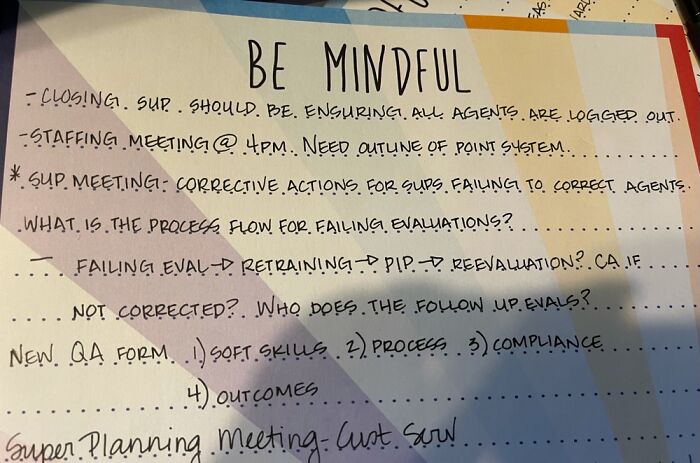 BE MINDFUL
- CLOSING SUP. SHOULD BE ENSURING ALL AGENTS ARE LOGGED OUT.
- STAFFING MEETING @ 4PM. NEED OUTLINE OF POINT SYSTEM.
* SUP MEETING: CORRECTIVE ACTIONS FOR SUPS FAILING TO CORRECT AGENTS.
WHAT IS THE PROCESS FLOW FOR FAILING EVALUATIONS?
— FAILING EVAL → RETRAINING → PIP → REEVALUATION? CA IF
NOT CORRECTED? WHO DOES THE FOLLOW UP EVALS?
NEW QA FORM 1) SOFT SKILLS 2) PROCESS 3) COMPLIANCE
4) OUTCOMES
Super Planning Meeting - Cust Serv